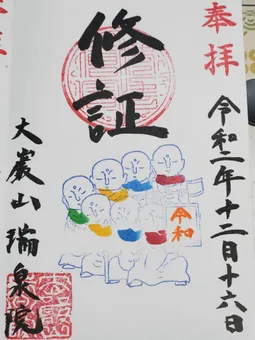 奉拝
令和二年十二月十六日
修証
令和
大巖山瑞泉院